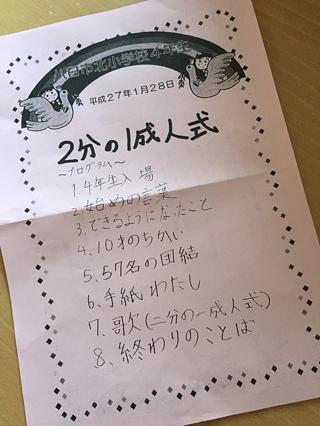 八日市北小学校4年生
平成27年1月28日
2分の1成人式
～プログラム～
1. 4年生入場
2. 始めの言葉
3. できるようになったこと
4. 10才のちかい
5. 57名の団結
6. 手紙わたし
7. 歌(二分の一成人式)
8. 終わりのことば